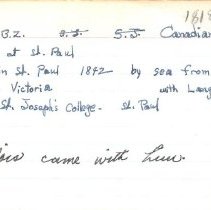 1818
B.Z. S.J. S.J. Canadian
at St. Paul
in St. Paul 1842 by sea from
Victoria with Lang
St. Joseph's College. St. Paul
came with Luu.